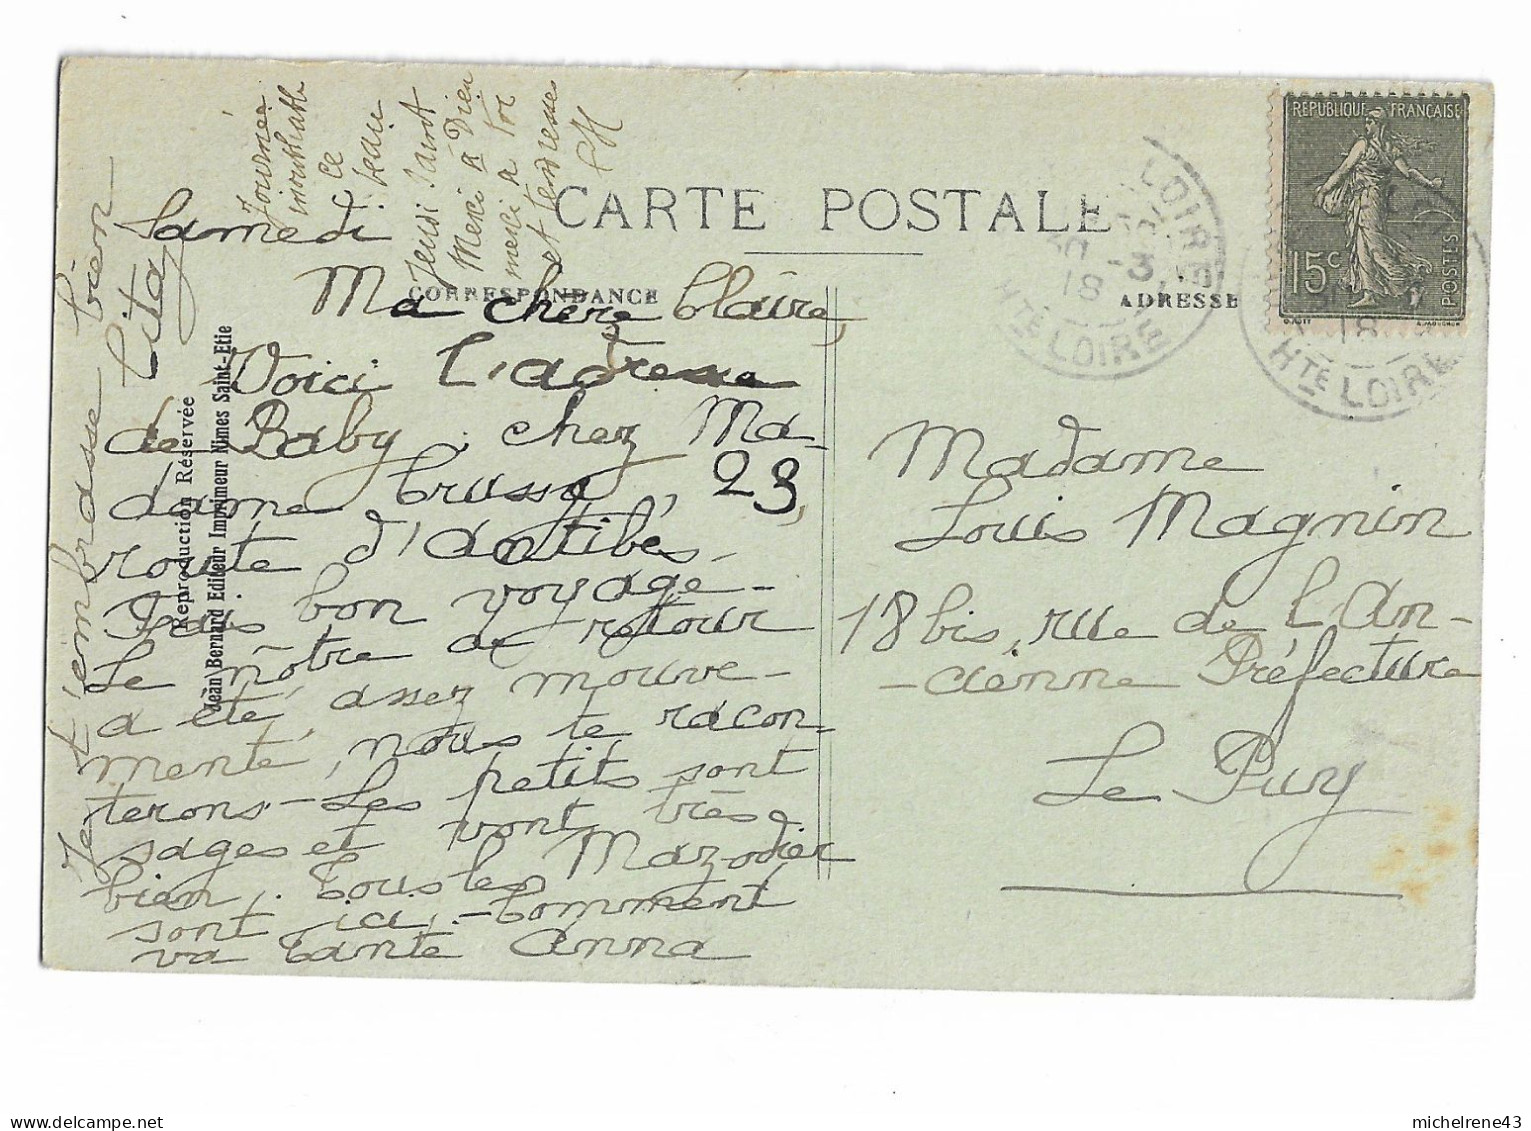 Journée
inoubliable
ce
Jeudi Saint
Merci à Dieu
merci à toi
et tendresses
CARTE POSTALE
CORRESPONDANCE
ADRESSE
REPUBLIQUE FRANÇAISE
15c
POSTES
30 -3
18
HTE LOIRE
18
HTE LOIRE
Samedi
Ma chère Claire,
Voici l'adresse
de Baby. chez Ma-
dame Crussy, 23,
route d'Antibes-
Fais bon voyage-
Le nôtre de retour
a été, assez mouve-
menté, nous te racon-
terons-Les petits sont
sages et vont très
bien. Tous les Mazodier
sont ici,-Comment
va tante Anna
Je t'embrasse bien
Cita
Reproduction Réservée
Jean Bernard Editeur Imprimeur Nimes Saint-Etie
Madame
Louis Magnin
18 bis, rue de l'An-
-cienne Préfecture
Le Puy
michelrene43